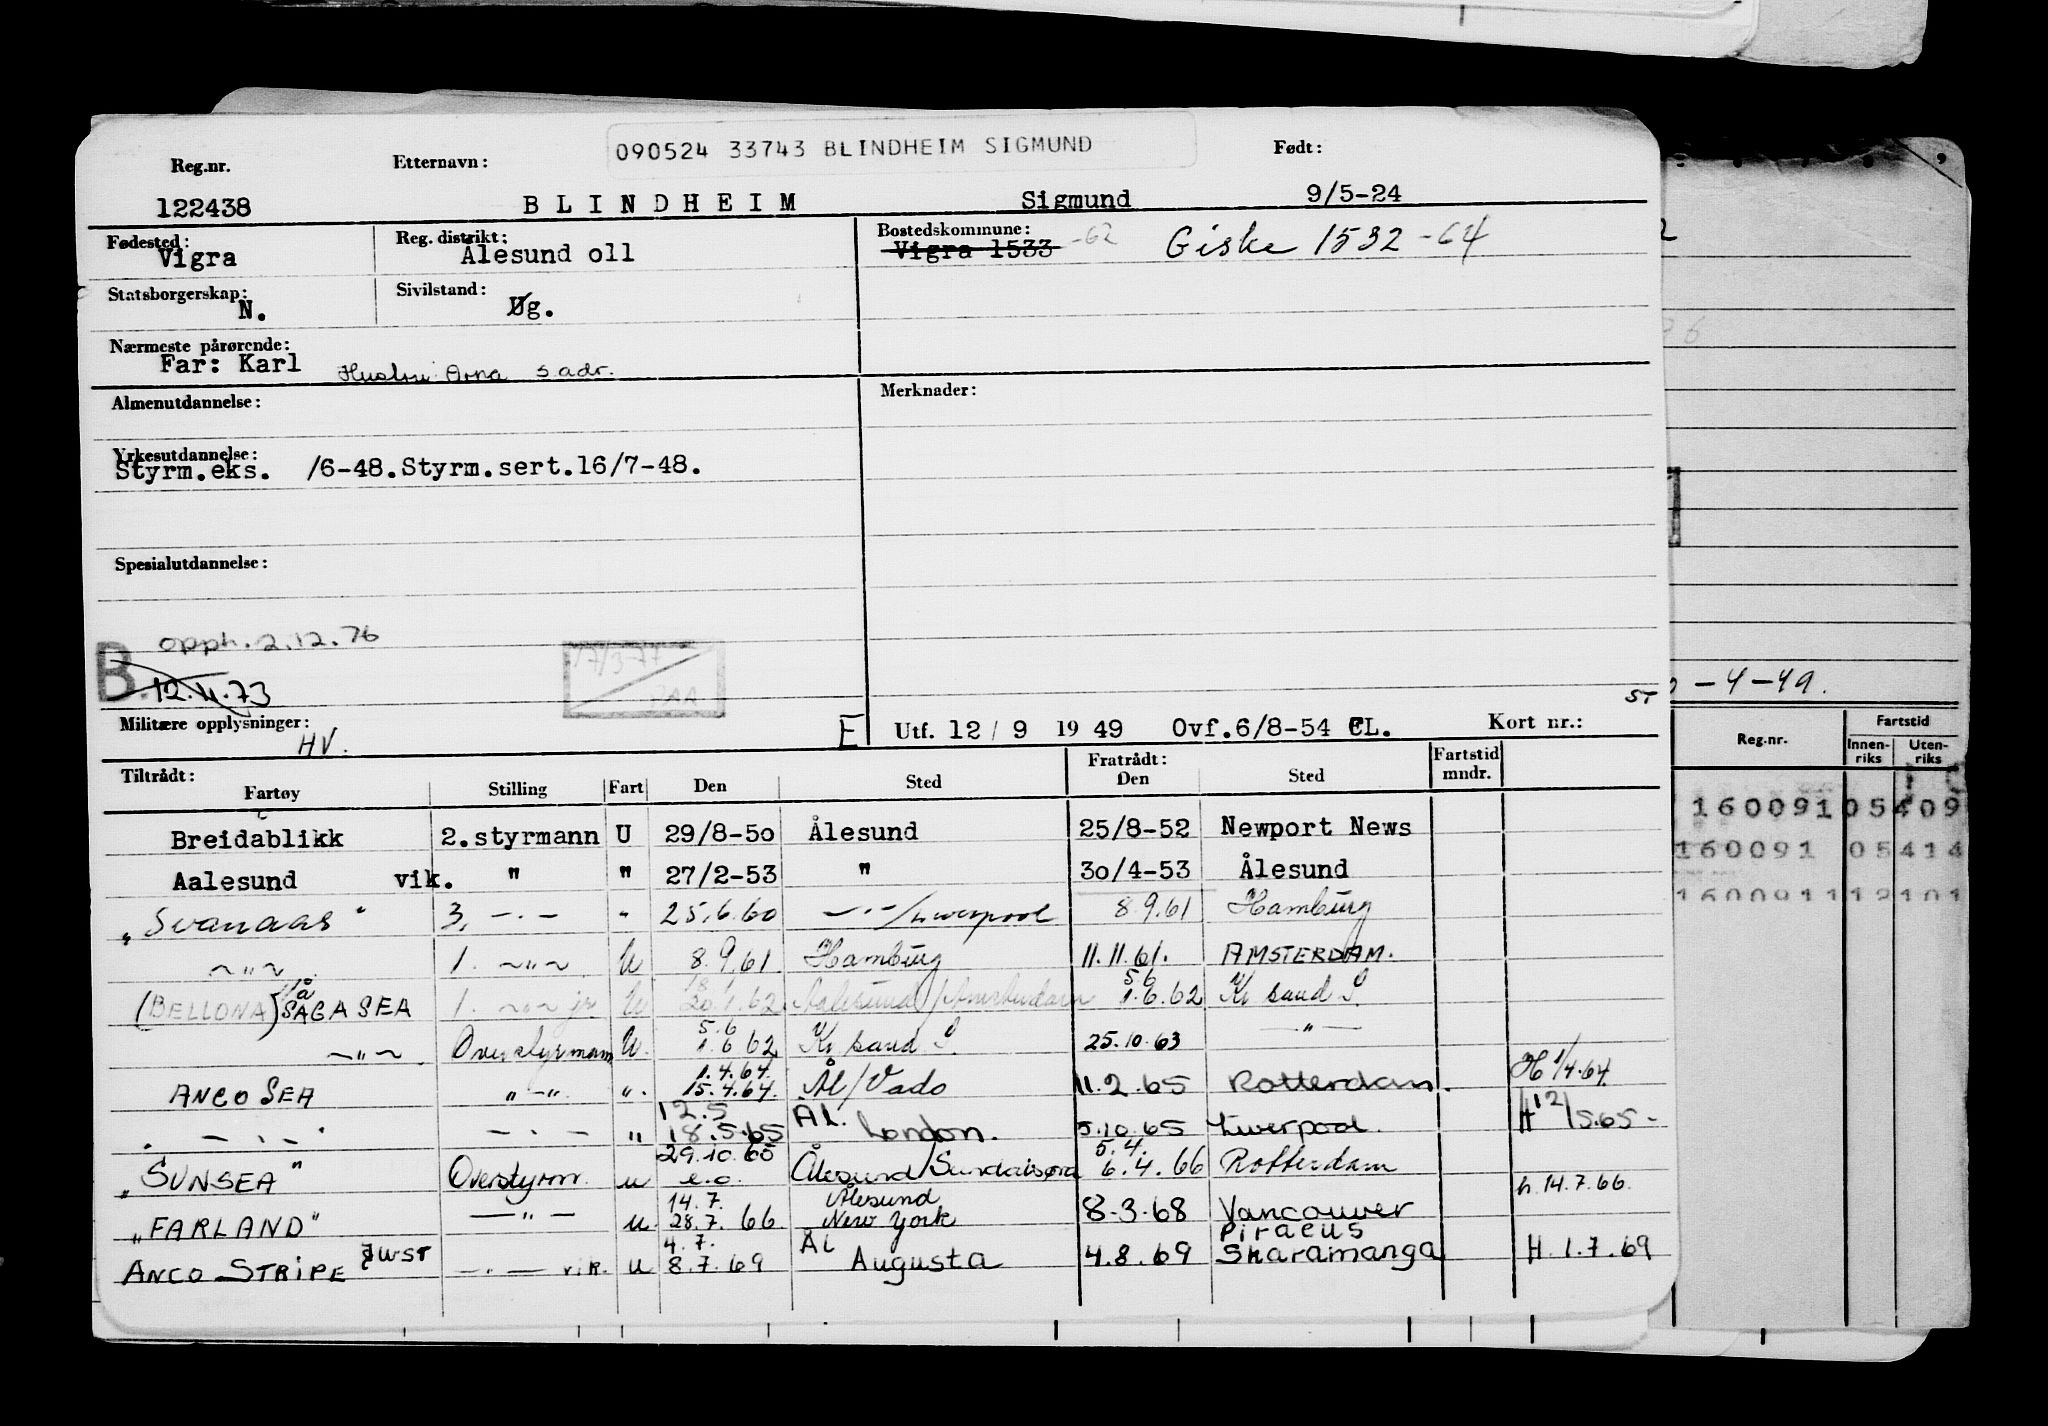 090524 33743 BLINDHEIM SIGMUND
Reg.nr. Etternavn: Født:
122438 BLINDHEIM Sigmund 9/5-24
Fødested: Reg. distrikt: Bostedskommune:
Vigra Ålesund oll Vigra 1533 -62 Giske 1532 -64
Statsborgerskap: Sivilstand:
N. Ug.
Nærmeste pårørende:
Far: Karl Hustru: Arna s.adr.
Almenutdannelse: Merknader:
Yrkesutdannelse:
Styrm.eks. /6-48.Styrm.sert.16/7-48.
Spesialutdannelse:
opph. 2.12.76
B. 12.4.73
17/3-77
PAA
ST
Militære opplysninger: HV. E Utf. 12/9 1949 Ovf.6/8-54 CL. Kort nr.:
Tiltrådt: Fratrådt: Fartstid mndr.
Fartøy Stilling Fart Den Sted Den Sted
Breidablikk 2.styrmann U 29/8-50 Ålesund 25/8-52 Newport News
Aalesund vik. " " 27/2-53 " 30/4-53 Ålesund
"Svanaas" 3. -.- " 25.6.60 -.-/Liverpool 8.9.61 Hamburg
~"~ 1. ~"~ U 8.9.61 Hamburg 11.11.61. AMSTERDAM.
(BELLONA) SAGA SEA 1. ~"~ jr U 20.1.62 Aalesund/Amsterdam 5.6 1.6.62 Kr sand S.
~"~ Overstyrmann U. 5.6 1.6 62 Kr sand S. 25.10.63 -"-
ANCO SEA "-" ". 1.4.64. 15.4.64. Ål/Vado 11.2.65 Rotterdam. H 1/4.64
" - . - " - . - " 12.5 18.5.65 ÅL. London. 5.10.65 Liverpool. H 12/5.65-
"SUNSEA" Overstyrm. u 29.10.65 e.o. Ålesund/Sundalsøra 5.4. 6.4.66 Rotterdam
"FARLAND" -"- u 14.7. 28.7. 66 Ålesund New York 8.3.68 Vancouver h. 14.7.66.
ANCO STRIPE JWST -.- vik. u 4.7. 8.7.69 ÅL Augusta 4.8.69 Piraeus Skaramanga H. 1.7.69
-4-49.
Reg.nr. Fartstid
Innenriks Utenriks
160091 05409
160091 05414
160091 12101